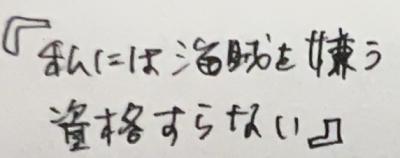 『私には海賊を嫌う
資格すらない』